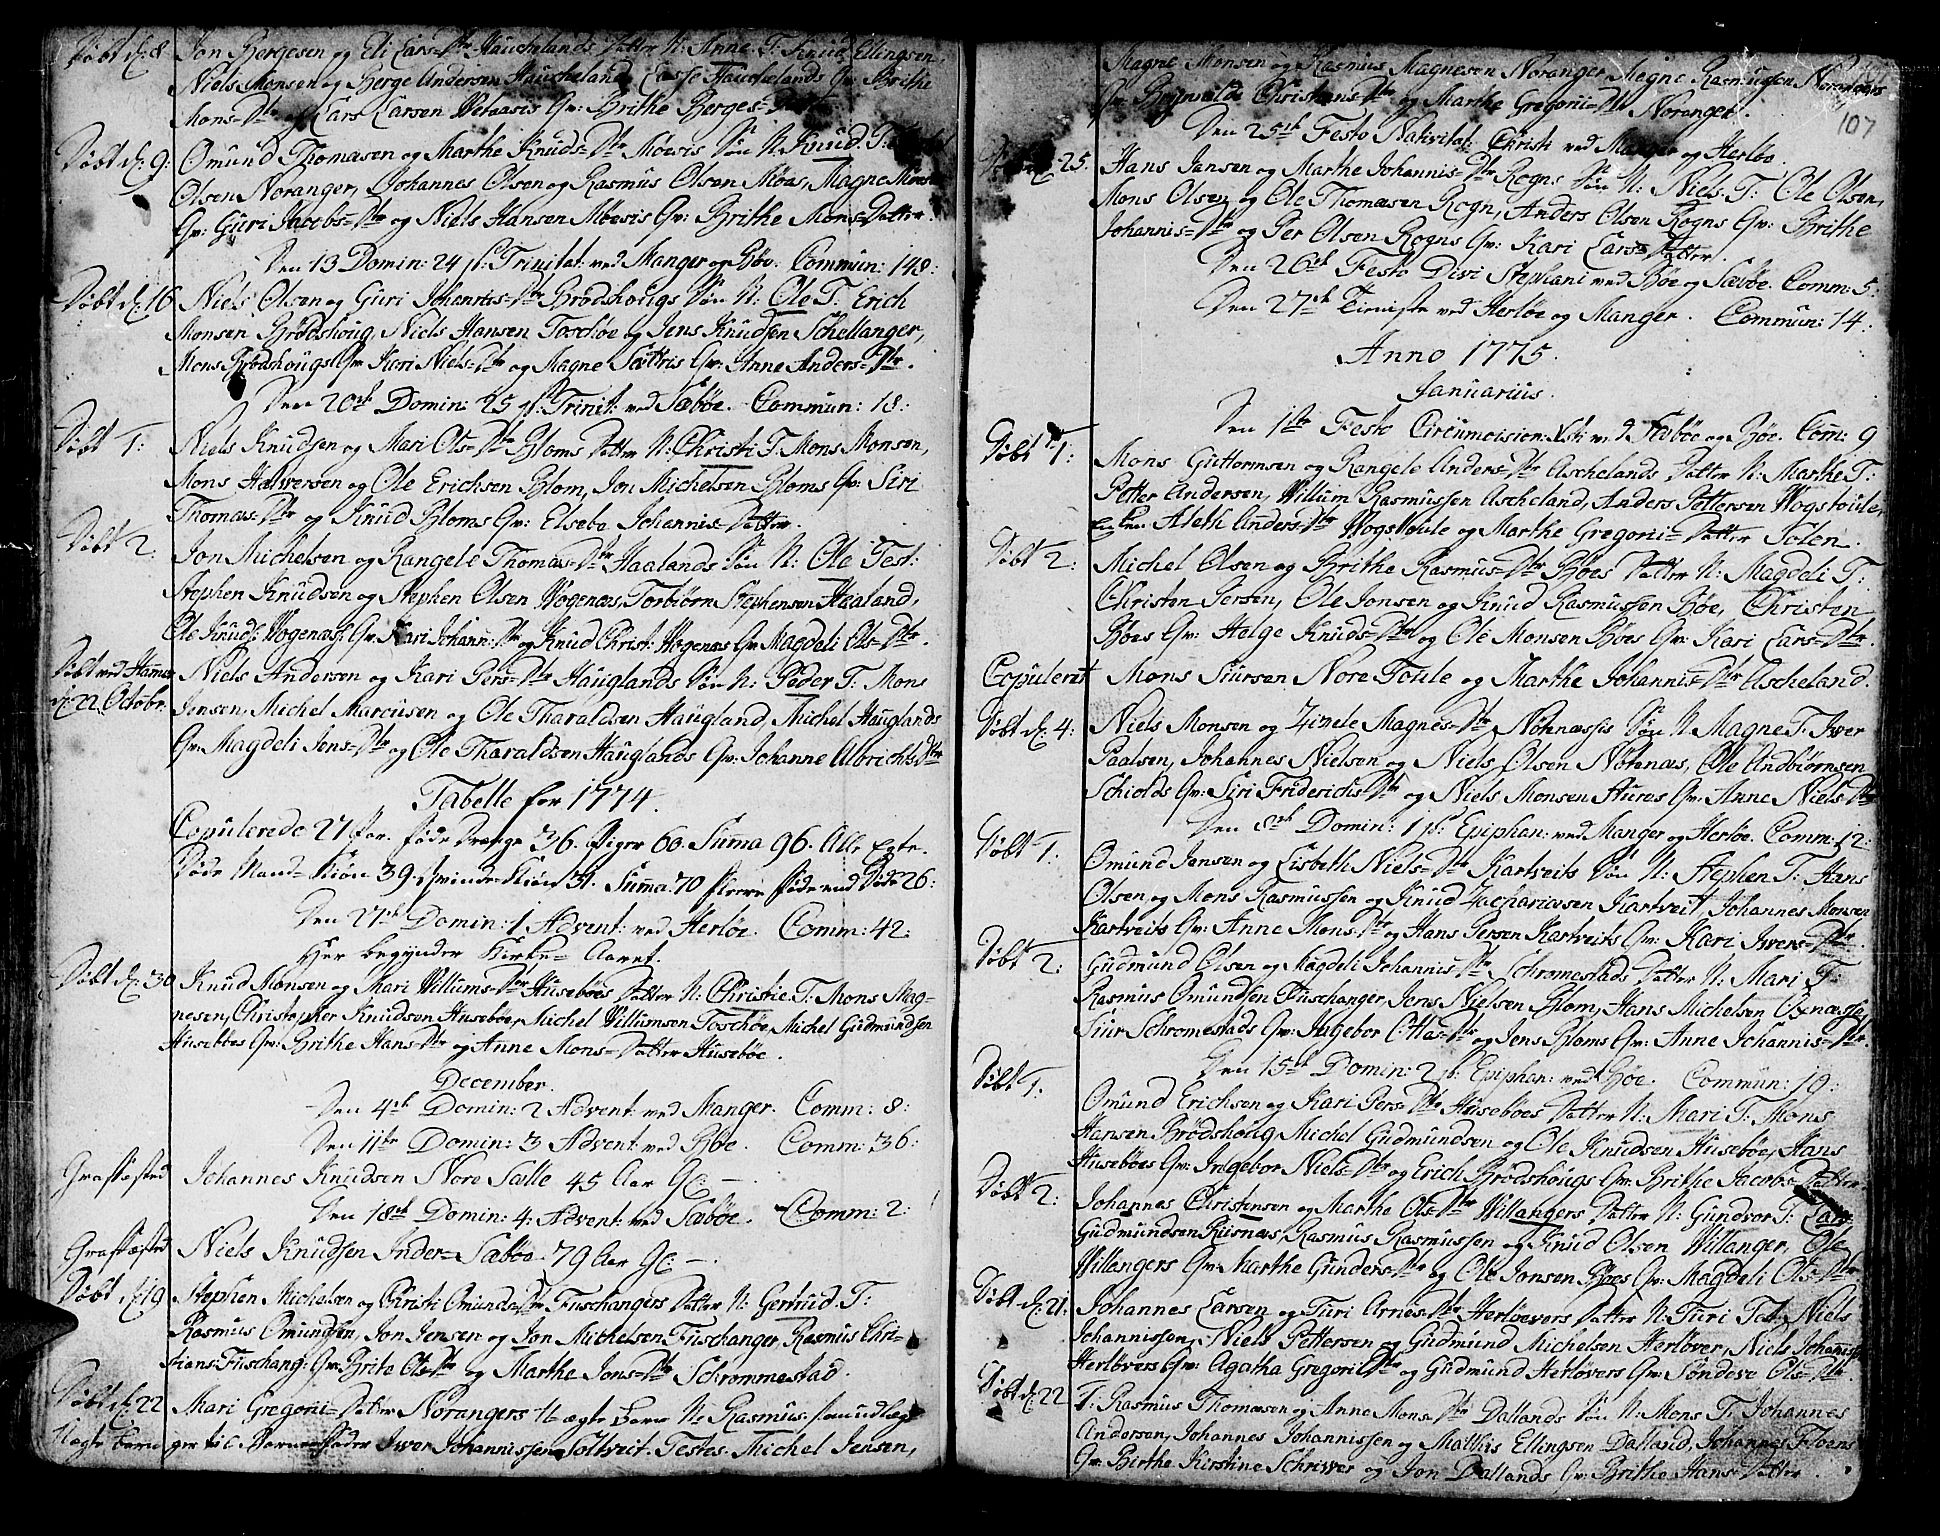 Døbt d. 8. Jon Bergesen og Eli Lars=Dtr Hauchelands Datter N: Anne T: Knud Ellingsen,
Niels Monsen og Berge Andersen Haucheland, Lasse Hauchelands Qv: Brithe
Mons=Dtr og Lars Larsen Qv: Brithe Berges=Datter
Døbt d. 9: Omund Thomæsen og Marthe Knuds=Dtr Møesis Søn N: Knud T:
Olsen Noranger, Johannes Olsen og Rasmus Olsen Møes, Magne
Qv: Guri Jacobs=Dtr og Niels Hansen Møesis Qv: Brithe Mons=Datter.
Den 13 Domin: 24 p: Trinitat: ved Manger og Bøe. Commun: 148:
Døbt d. 16 Niels Olsen og Guri Johannis=Dtr Brodshougs Søn N: Ole T: Erich
Monsen Brødshoug, Niels Hansen Toschøe og Jens Knudsen Schellanger,
Mons Brødshougs Qv: Kari Niels=Dtr og Magne Sættris Qv: Anne Anders=Dtr.
Den 20de Domin: 25 p: Trinit: ved Sæbøe. Commun: 18:
Døbt 1: Niels Knudsen og Mari Ols=Dtr Bloms Datter N: Christi T: Mons Monsen,
Mons Halversen og Ole Erichsen Blom, Jon Michelsen Bloms Qv: Siri
Thomæs=Dtr og Knud Bloms Qv: Elsebe Johannis=Datter.
Døbt 2: Jon Michelsen og Rangele Thomæs=Dtr Haalands Søn N: Ole Test:
Stephen Knudsen og Stephen Olsen Wogenæs, Torbiørn Stephensen Haaland,
Ole Knuds: Wogenæs Qv: Kari Johann: Dtr og Knud Christ: Wogenæs Qv: Magdeli Ols=Dtr.
Døbt ved Hammer Niels Andersen og Kari Pers=Dtr Hauglands Søn N: Peder T: Mons
d. 22 Octobr. Jensen, Michel Marcusen og Ole Tharaldsen Haugland, Michel Hauglands
Qv: Magdeli Jens=Dtr og Ole Tharaldsen Hauglands Qv: Johanne Albrichts Dtr
Tabelle for 1774.
Copulerede 27 Par. fødde Drænge 36. Piger 60. Suma 96. Alle Egte.
Døde Mand=Kiøn 39. Qvinde=Kiøn 31. Suma: 70 fleere fødde end Døde 26:
Den 27de Domin: 1 Advent: ved Herløe. Comm: 42:
Her begynder Kirke=Aaret.
Døbt d. 30 Knud Monsen og Mari Villums=Dtr Husebøes Datter N: Christie T: Mons Mag-
nesen, Christopher Knudsen Husebøe, Michel Villumsen Toschøe, Michel Gudmundsen
Husebøes Qv: Brithe Hans=Dtr og Anne Mons=Datter Husebøe.
December.
Den 4de Domin: 2 Advent: ved Manger. Comm: 8:
Den 11te Domin: 3 Advent: ved Bøe. Comm: 36:
Graffæsted Johannes Knudsen Nore Sælle 45 Aar G: —
Den 18de Domin: 4: Advent: ved Sæbøe. Comm: 2:
Graffæsted Niels Knudsen Inder=Sæbøe. 79 Aar G: —.
Døbt d. 19 Stephen Michelsen og Christi Omunds=Dtr Fuschangers Datter N: Gertrud T:
Rasmus Omundsen, Jon Jensen og Jon Michelsen Fuschanger, Rasmus Chri-
stians Fuschang: Qv: Brite Ols=Dtr og Marthe Jons=Dtr Schrommestad.
Døbt d. 22 Mari Gregorii=Datter Norangers U-ægte Barn N: Rasmus. som udlæg-
Uægte barn ger til Barnefader Iwer Johannissen Toltveit. Testes. Michel Jensen,
107
Magne Monsen og Rasmus Magnesen Noranger, Magne Rasmussen Norangers
Qv: Christens=Dtr og Marthe Gregorii=Dtr Noranger.
Den 25de Festo Nativitat: Christi ved Manger og Herløe.
25. Hans Jansen og Marthe Johannis=Dtr Rogns Søn N: Niels T: Ole Olsen,
Mons Olsen og Ole Thomæsen Rogn, Anders Olsen Rogns Qv: Brithe
Johannis=Dtr og Per Olsen Rogns Qv: Kari Lars=Datter.
Den 26de Festo Divi Stephani ved Bøe og Sæbøe. Comm: 5:
Den 27de ved Herløe og Manger. Commun: 14:
Anno 1775.
Januarius.
Den 1ste Festo Circumcision: Xsti ved Sæbøe og Bøe. Com: 9
Døbt 1: Mons Guttormsen og Rangele Anders=Dtr Aschelands Datter N: Marthe T:
Petter Andersen, Willum Rasmussen Ascheland, Anders Pettersen Wogstoule,
Enken Aleth Anders=Dtr Wogstoule og Marthe Gregorii=Datter Solem.
Døbt 2: Michel Olsen og Brithe Rasmus=Dtr Bøes Datter N: Magdeli T:
Christen Persen, Ole Jonsen og Knud Rasmussen Bøe, Christen
Bøes Qv: Helge Knuds=Dtr og Ole Monsen Bøes Qv: Kari Lars=Dtr.
Copuleret Mons Siursen Nore Foule og Marthe Johannis=Dtr Ascheland.
Døbt d. 4: Niels Monsen og Zinnele Magnes=Dtr Nøtnæssis Søn N: Magne T: Iwer
Paalsen, Johannes Nielsen og Niels Olsen Nøtenæs, Ole Andbiørnsen
Schiolds Qv: Siri Friderichs Dtr og Niels Monsen Huras Qv: Anne Niels=Dtr
Den 8de Domin: 1 p: Epiphan: ved Manger og Herløe. Comm: 12:
Døbt 1. Omund Jensen og Lisbeth Niels=Dtr Kartveits Søn N: Stephen T: Hans
Olsen og Mons Rasmussen og Knud Zachariæsen Kartveit, Johannes Monsen
Kartveits Qv: Anne Mons=Dtr og Hans Persen Kartveits Qv: Kari Iwers=Dtr.
Døbt 2: Gudmund Olsen og Magdeli Johannis=Dtr Schromestads Datter N: Mari T:
Rasmus Omundsen Fuschanger, Jens Nielsen Blom, Hans Michelsen Oxnæs,
Siur Schromestads Qv: Ingebor Ottas=Dtr og Jens Bloms Qv: Anne Johannis=Dtr.
Den 15de Domin: 2 p: Epiphan: ved Bøe. Commun: 19:
Døbt 1. Omund Erichsen og Kari Pers=Dtr Husebøes Datter N: Mari T: Mons
Hansen Brødshoug, Michel Gudmundsen og Ole Knudsen Husebøe, Hans
Husebøes Qv: Ingebor Niels=Dtr og Erich Brødshougs Qv: Brithe Jacobs=Datter.
Døbt 2: Johannes Christensen og Marthe Ols=Dtr Willangers Datter N: Gundvor T: Lars
Gudmundsen Risnæs, Rasmus Rasmussen og Knud Olsen Willanger, Ole
Willangers Qv: Marthe Gunders=Dtr og Ole Jonsen Bøes Qv: Magdeli Ols=Dtr
Døbt d. 21. Johannes Larsen og Turi Arnes=Dtr Herløevers Datter N: Turi Test: Niels
Johannissen, Niels Pettersen og Gudmund Michelsen Herløver, Niels Johannis:
Herløvers Qv: Agatha Gregorii Dtr og Gudmund Herløvers Qv: Søndeve Ols=Dtr.
Døbt d. 22 T: Rasmus Thomæsen og Anne Mons=Dtr Dallands Søn N: Mons T: Johannes
Andersen, Johannes Johannissen og Mathis Ellingsen Dalland, Johannes Floens
Qv: Birthe Kirstine Schriwer og Jon Dallands Qv: Brithe Hans=Datter.